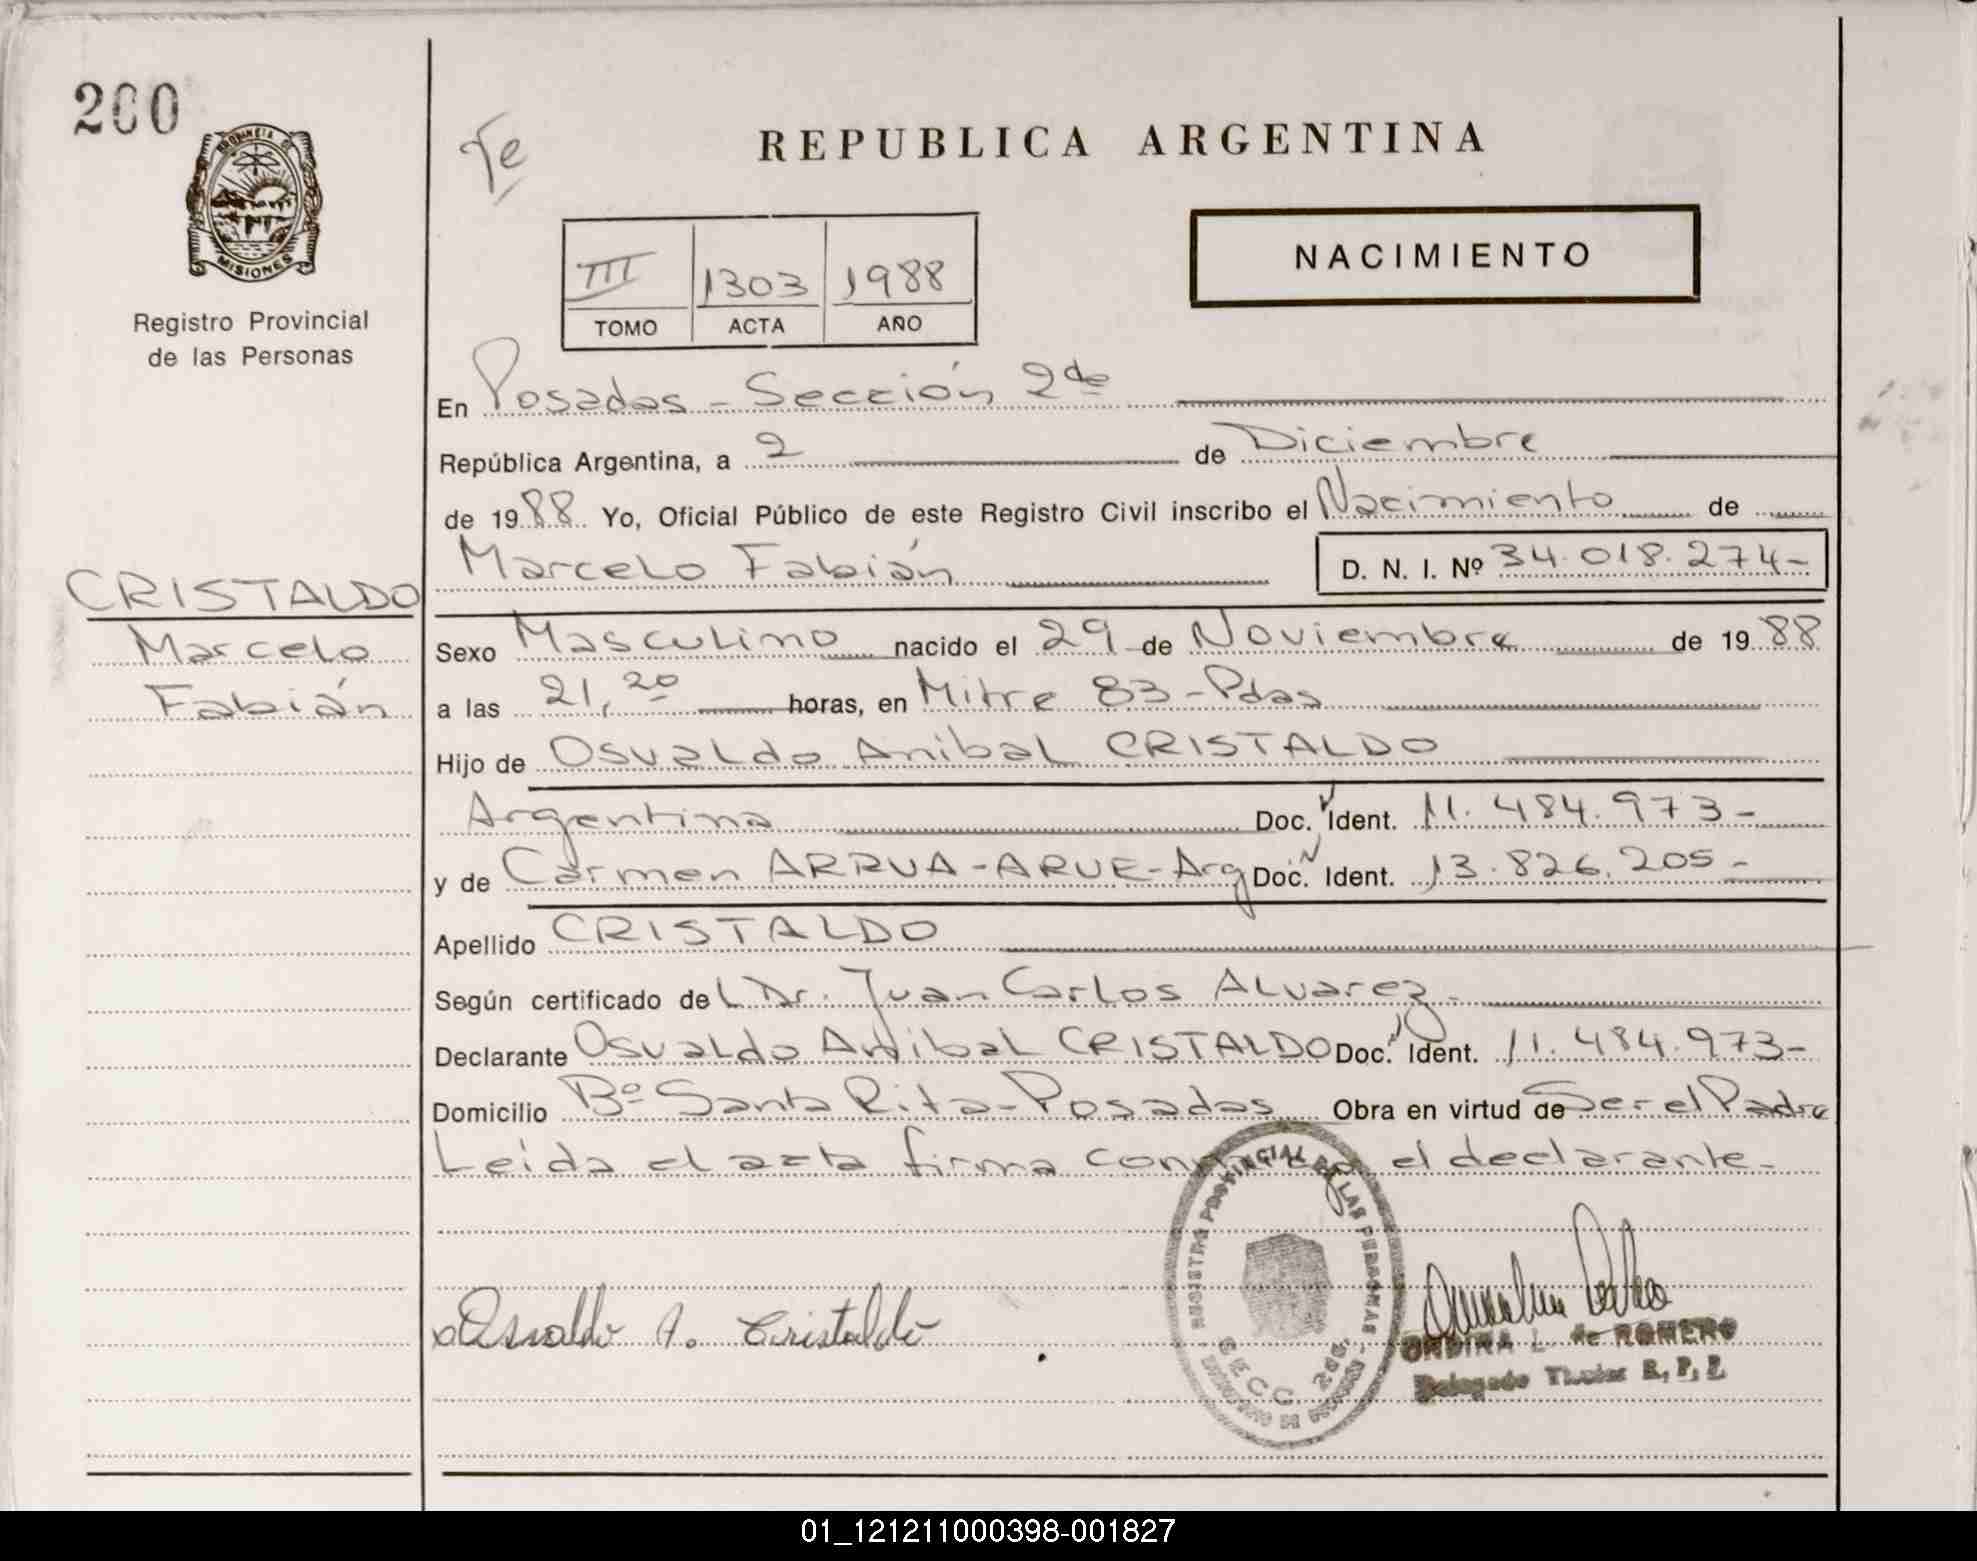 200
PROVINCIA DE
MISIONES
Registro Provincial
de las Personas
Fe
REPUBLICA ARGENTINA
III 1303 1988
TOMO ACTA AÑO
NACIMIENTO
En Posadas - Sección 2da
República Argentina, a 2 de Diciembre
de 1988 Yo, Oficial Público de este Registro Civil inscribo el Nacimiento de
Marcelo Fabián D. N. I. Nº 34.018.274-
CRISTALDO
Marcelo
Fabián
Sexo Masculino nacido el 29 de Noviembre de 1988
a las 21,20 horas, en Mitre 83 - Pdas
Hijo de Osvaldo Anibal CRISTALDO
Argentina Doc. Ident. 11.484.973-
y de Carmen ARRUA-ARUE-Arg Doc. Ident. 13.826.205-
Apellido CRISTALDO
Según certificado del Dr. Juan Carlos Alvarez-
Declarante Osvaldo Anibal CRISTALDO Doc. Ident. 11.484.973-
Domicilio Bº Santa Rita - Posadas Obra en virtud de Ser el Padre
Leída el acta firma conmigo el declarante-
REGISTRO PROVINCIAL DE LAS PERSONAS
SECC. 2da.
Osvaldo A. Cristaldo
ONDINA L. de ROMERO
Delegado Titular R. P. P.
01_121211000398-001827